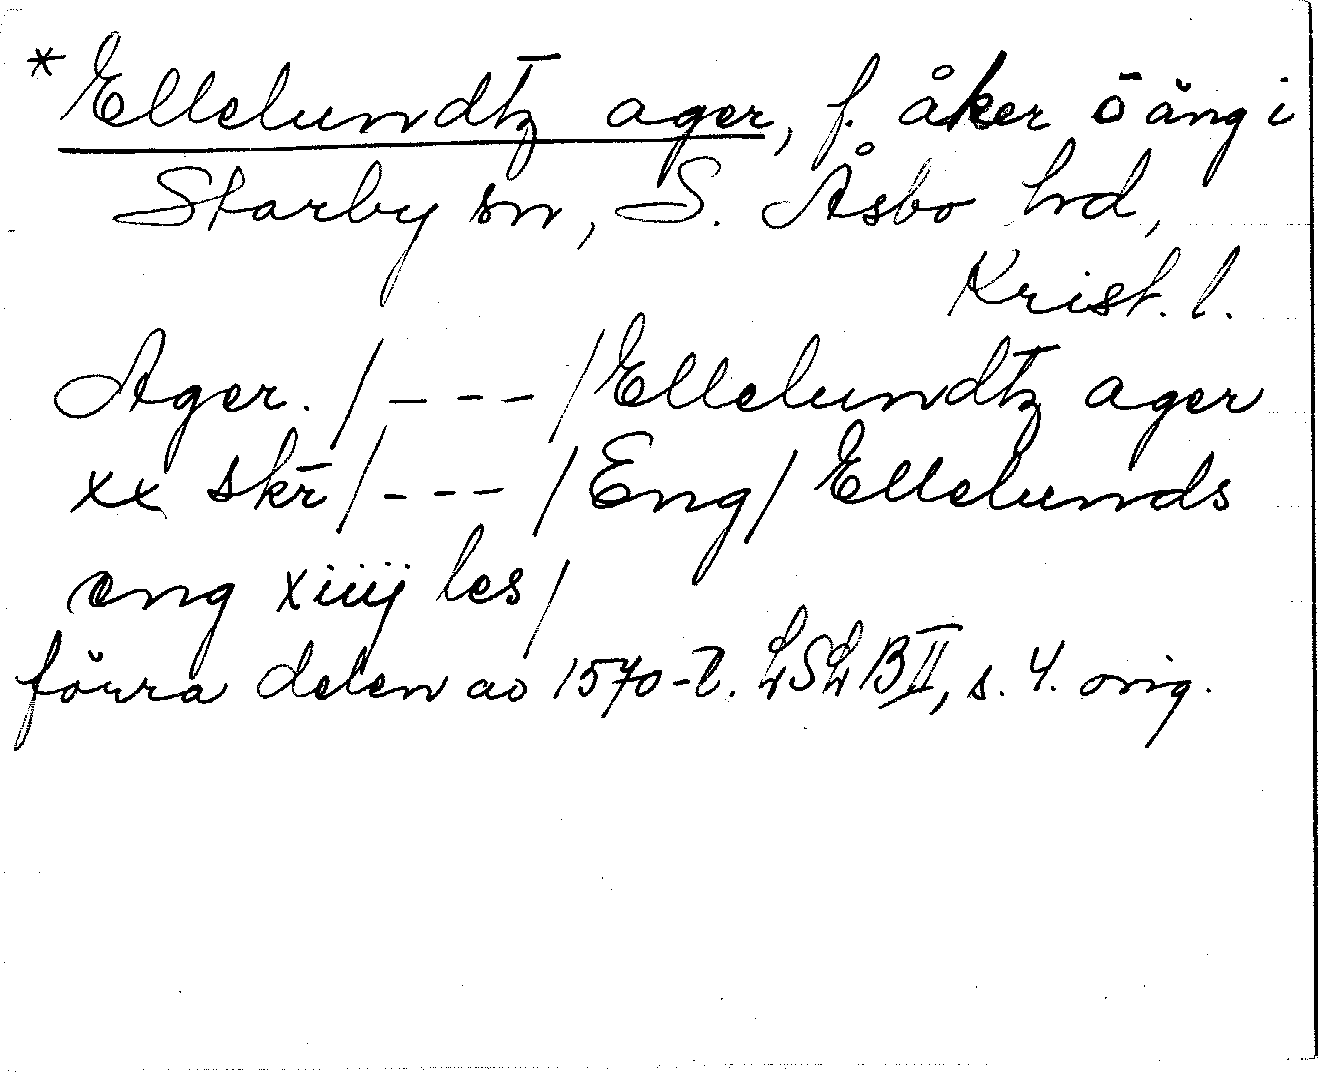 *Ellelundtz ager, f. åker o äng i
Starby sn, S. Åsbo hd,
Krist. l.
Ager. /---/ Ellelundtz ager
xx skr̄ /---/ Eng / Ellelunds
eng xiiij les /
förra delen av 1570-t. LSLB II, s. 4. orig.